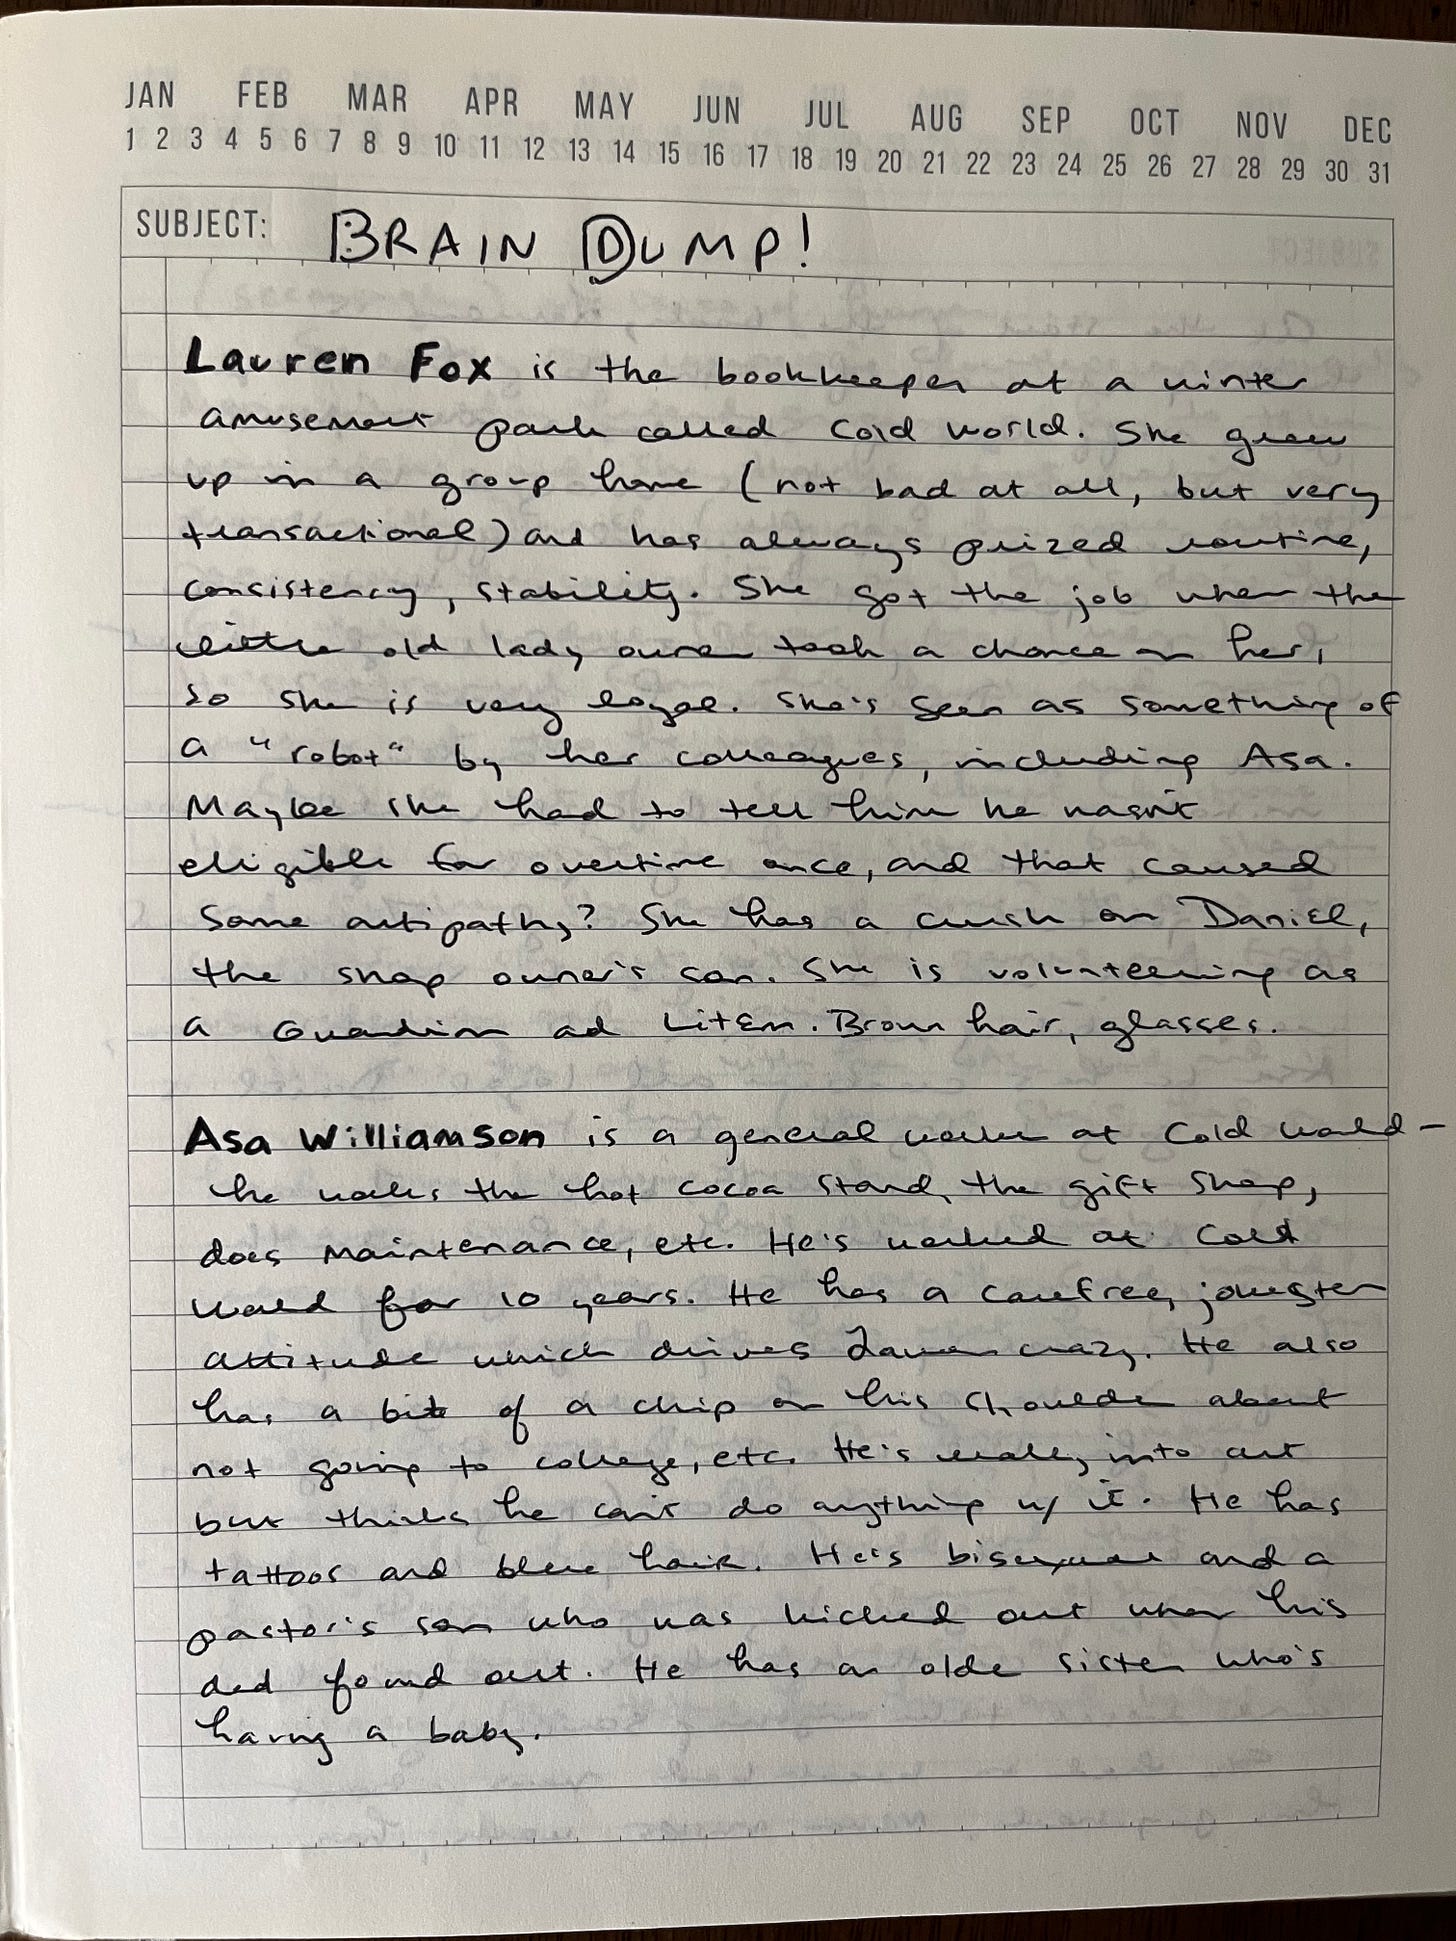 JAN FEB MAR APR MAY JUN JUL AUG SEP OCT NOV DEC
1 2 3 4 5 6 7 8 9 10 11 12 13 14 15 16 17 18 19 20 21 22 23 24 25 26 27 28 29 30 31
SUBJECT: BRAIN DUMP!
Lauren Fox is the bookkeeper at a winter
amusement park called Cold World. She grew
up in a group home (not bad at all, but very
transactional) and has always prized routine,
consistency, stability. She got the job when the
little old lady owner took a chance on her,
so she is very loyal. She's seen as something of
a "robot" by her colleagues, including Asa.
Maybe she had to tell him he wasn't
eligible for overtime once, and that caused
some antipathy? She has a crush on Daniel,
the shop owner's son. She is volunteering as
a Guardian ad Litem. Brown hair, glasses.
Asa Williamson is a general worker at Cold World—
he works the hot cocoa stand, the gift shop,
does maintenance, etc. He's worked at Cold
World for 10 years. He has a carefree, jokester
attitude which drives Lauren crazy. He also
has a bit of a chip on his shoulder about
not going to college, etc. He's really into art
but thinks he can't do anything w/ it. He has
tattoos and blue hair. He's bisexual and a
pastor's son who was kicked out when his
dad found out. He has an older sister who's
having a baby.